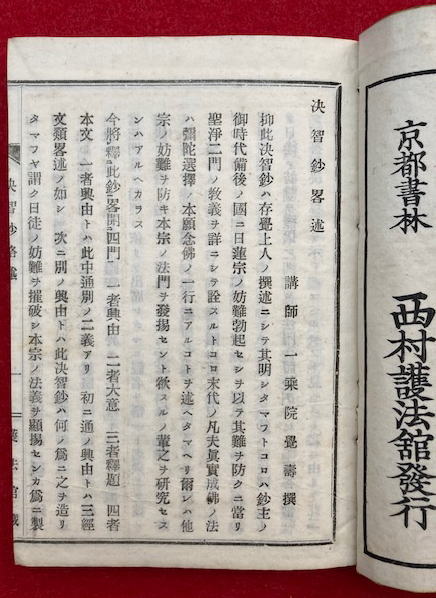 京都書林　西村護法舘發行
決智鈔畧述
講師一乘院覺壽撰
抑此決智鈔ハ存覺上人ノ撰述ニシテ其明シタマフトコロハ鈔主ノ
御時代備後ノ國ニ日蓮宗ノ妨難勃起セシヲ以テ其難ヲ防クニ當リ
聖淨二門ノ敎義ヲ詳ニシテ詮スルトコロ末代ノ凡夫眞實成佛ノ法
ハ彌陀選擇ノ本願念佛ノ一行ニアルコトヲ述ヘタマヘリ爾レハ他
宗ノ妨難ヲ防キ本宗ノ法門ヲ發揚セント欲スルノ輩之ヲ研究セス
ンハアルヘカラス
今將釋此鈔畧開四門　一者興由　二者大意　三者釋題　四者
本文　一者興由トハ此中通別ノ二義アリ　初ニ通ノ興由トハ三經
文類畧述ノ如シ　次ニ別ノ興由トハ此決智鈔ハ何ノ爲ニ之ヲ造リ
タマフヤ謂ク日徒ノ妨難ヲ摧破シ本宗ノ法義ヲ顯揚センカ爲ニ製
決智鈔畧述　一　護法舘